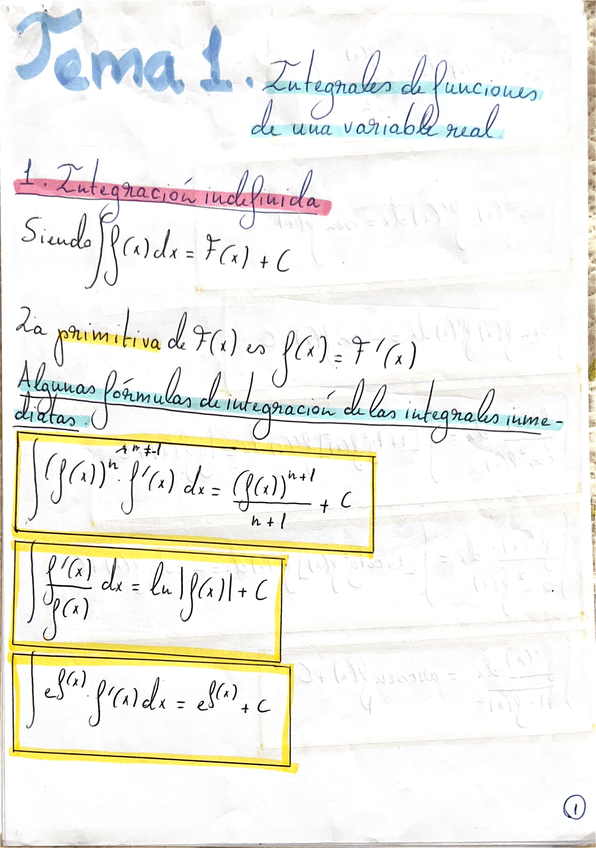 Tema 1. Integrales de funciones
de una variable real
1. Integración indefinida
Siendo ∫f(x)dx = F(x) + C
La primitiva de F(x) es f(x) = F'(x)
Algunas fórmulas de integración de las integrales inme-
diatas.
∫(f(x))ⁿ · f'(x) dx = (f(x))ⁿ⁺¹ / n+1 + C
∫ f'(x) / f(x) dx = ln |f(x)| + C
∫ e^f(x) · f'(x) dx = e^f(x) + C
1